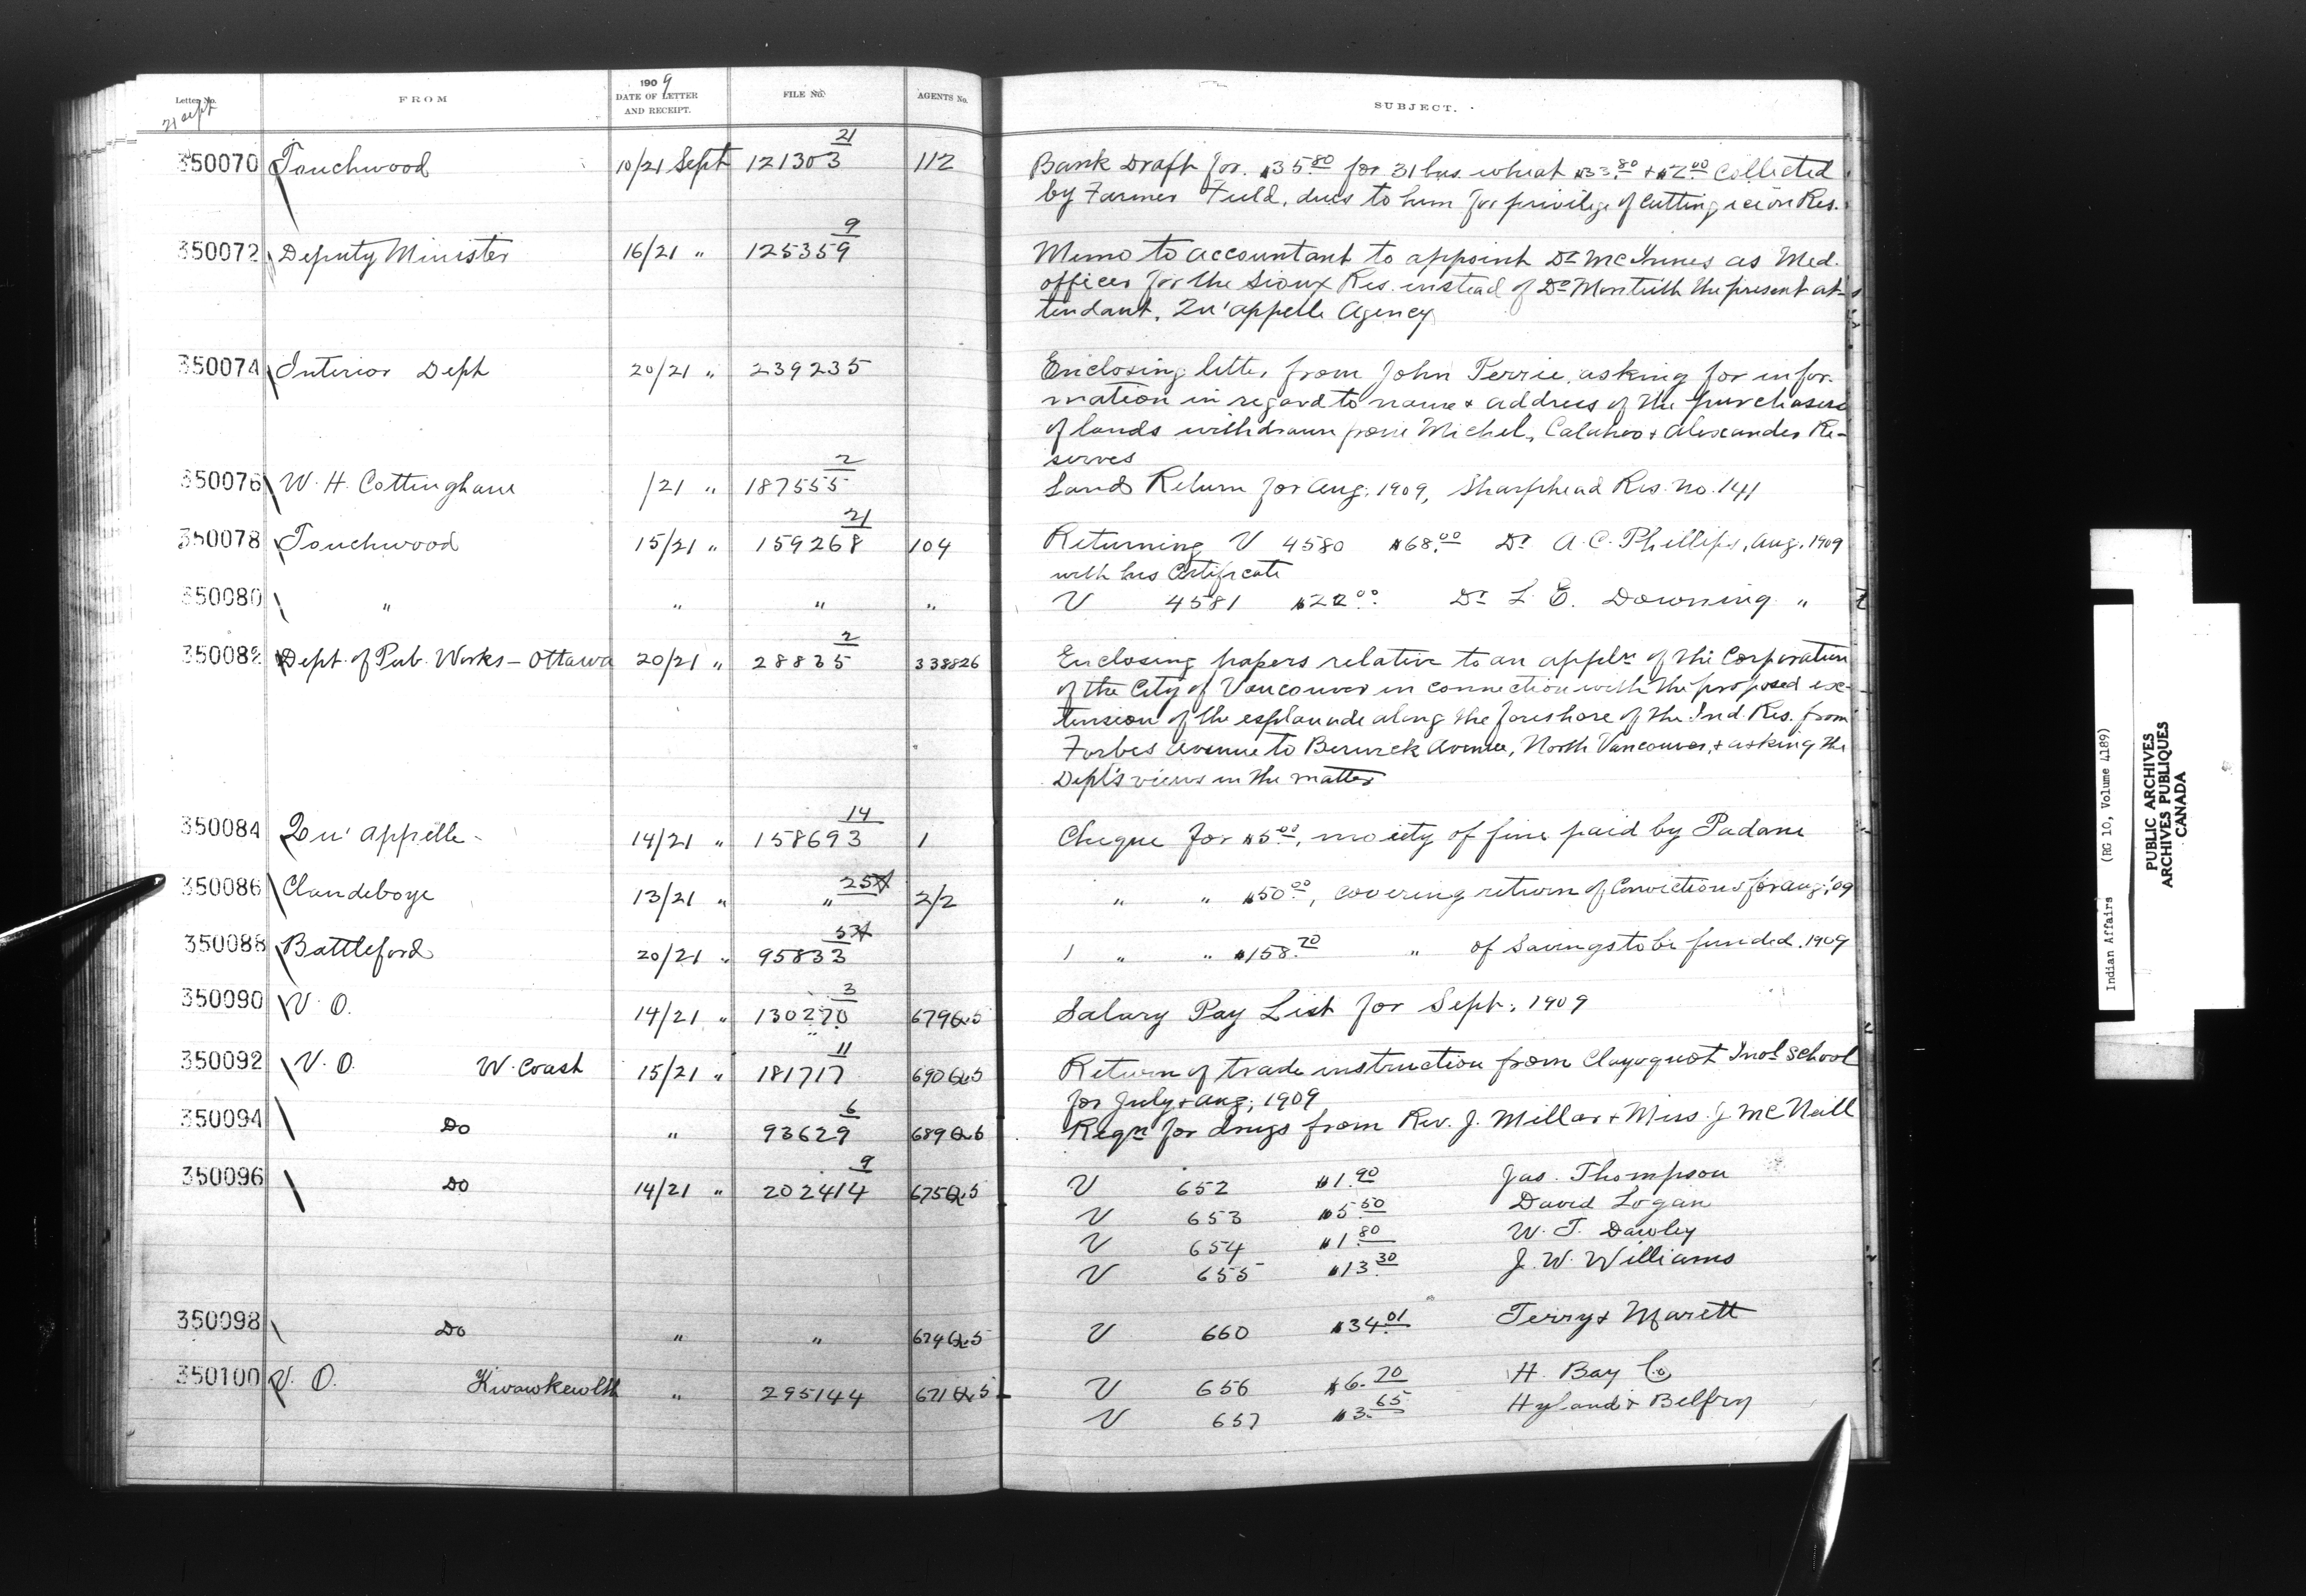 Letter No.
21 Sept
FROM
1909
DATE OF LETTER
AND RECEIPT.
FILE No.
AGENTS No.
SUBJECT.
350070 Touchwood 10/21 Sept 121303 21 112 Bank Draft for $35.80 for 31 bus. wheat $33.80 + $2.00 collected
by Farmer Field, dues to him for privilige of cutting ice on Res.
350072 Deputy Minister 16/21 " 125359 9 Memo to accountant to appoint Dr McInnes as Med.
officer for the Sioux Res. instead of Dr Monteith the present at-
tendant, Qu'appelle Agency
350074 Interior Dept 20/21 " 239235 Enclosing letter from John Perrie, asking for infor-
mation in regard to name + address of the purchasers
of lands withdrawn from Michel, Calahoo + Alexander Re-
serves
350076 W. H. Cottingham /21 " 187555 2 Land Return for Aug. 1909, Sharphead Res. No. 141
350078 Touchwood 15/21 " 159268 21 104 Returning V 4580 $68.00 Dr A. C. Phillips, Aug. 1909
with his Certificate
350080 " " " " V 4581 $22.00 Dr L. E. Downing "
350082 Dept. of Pub. Works - Ottawa 20/21 " 28835 2 338826 Enclosing papers relative to an appln of the Corporation
of the City of Vancouver in connection with the proposed ex-
tension of the esplanade along the foreshore of the Ind. Res. from
Forbes Avenue to Berwick Avenue, North Vancouver, + asking the
Dept's views in the matter
350084 Qu'appelle - 14/21 " 158693 14 1 Cheque for $5.00, moiety of fine paid by Padani
350086 Clandeboye 13/21 " " 25 2/2 " " $50.00, covering return of Convictions for Aug. '09
350088 Battleford 20/21 " 95833 53 1 " " $158.70 " of Savings to be funded. 1909
350090 V. O. 14/21 " 130270 3 679 Q.5 Salary Pay List for Sept. 1909
350092 V. O. W. Coast 15/21 " 181717 11 690 Q.5 Return of trade instruction from Clayoquot Indl School
for July + Aug. 1909
350094 Do " 93629 6 689 Q.5 Reqn for drugs from Rev. J. Millar + Miss J. McNall
350096 Do 14/21 " 202414 9 675 Q.5 V 652 $1.90 Jas. Thompson
V 653 $5.50 David Logan
V 654 $1.80 W. T. Dawley
V 655 $13.30 J. W. Williams
350098 Do " " 674 Q.5 V 660 $34.01 Terry + Marett
350100 V. O. Kwawkewlth " 295144 671 Q.5 V 656 $6.70 H. Bay Co
V 657 $3.65 Hyland + Belfry
Indian Affairs (RG 10, Volume 4189)
PUBLIC ARCHIVES
ARCHIVES PUBLIQUES
CANADA